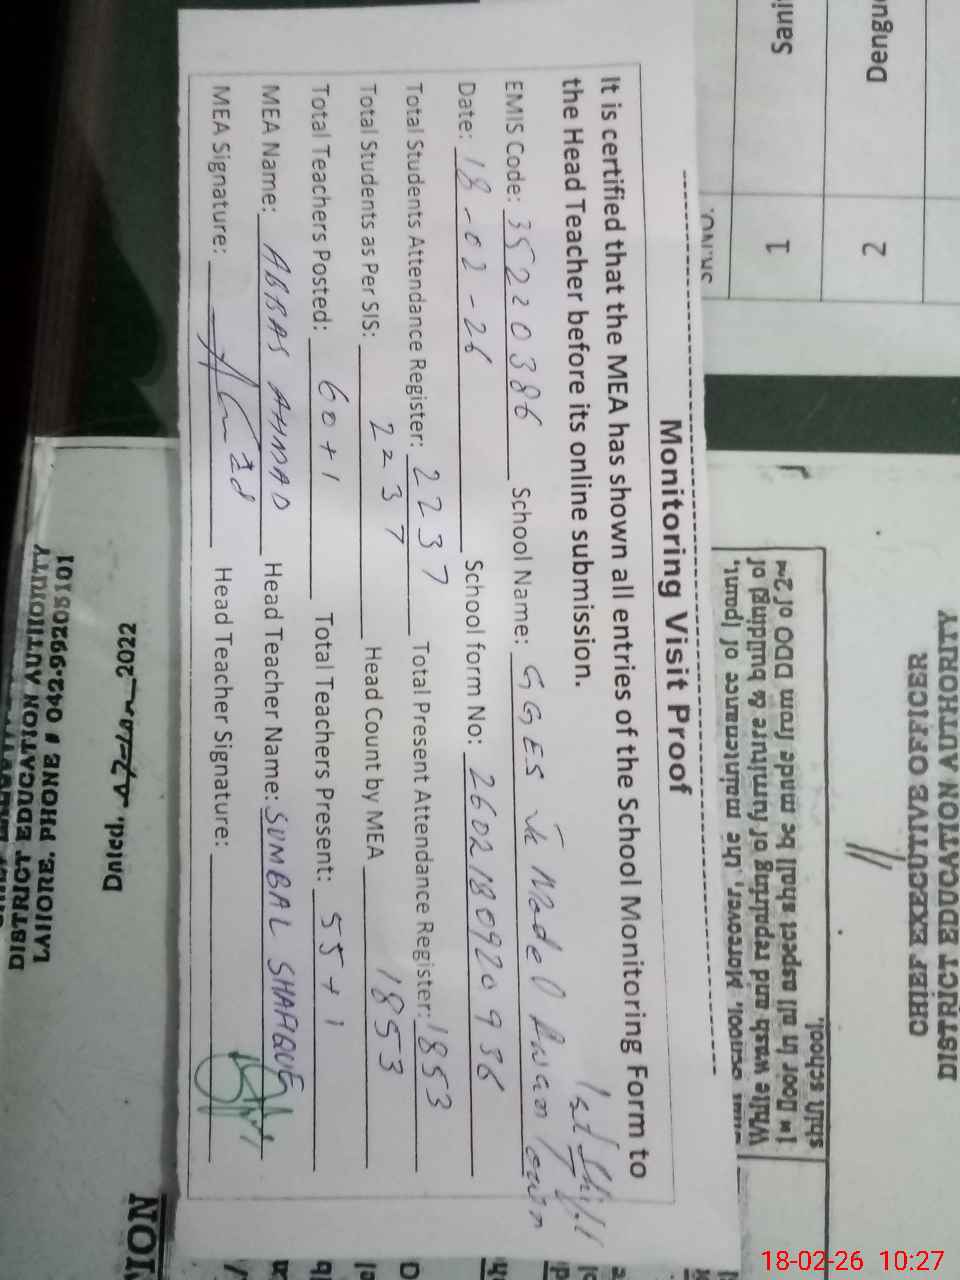 Monitoring Visit Proof
It is certified that the MEA has shown all entries of the School Monitoring Form to
the Head Teacher before its online submission.
1st Shift
EMIS Code: 35220386 School Name: GGES Jr Model Town
Date: 18-02-26 School form No: 260218092093
Total Students Attendance Register: 2237 Total Present Attendance Register: 1853
Total Students as Per SIS: 2237 Head Count by MEA 1853
Total Teachers Posted: 60+1 Total Teachers Present: 55+1
MEA Name: ABBAS AHMAD Head Teacher Name: SUMBAL SHAFIQUE
MEA Signature: Head Teacher Signature:
Sr.No.
1 Sani
2 Dengu
1st floor in all aspect shall be made from DDO of 2nd
shift school.
DISTRICT EDUCATION AUTHORITY
CHIEF EXECUTIVE OFFICER
DISTRICT EDUCATION AUTHORITY
LAHORE. PHONE # 042-99208101
Dated. 2022
ION
18-02-26 10:27